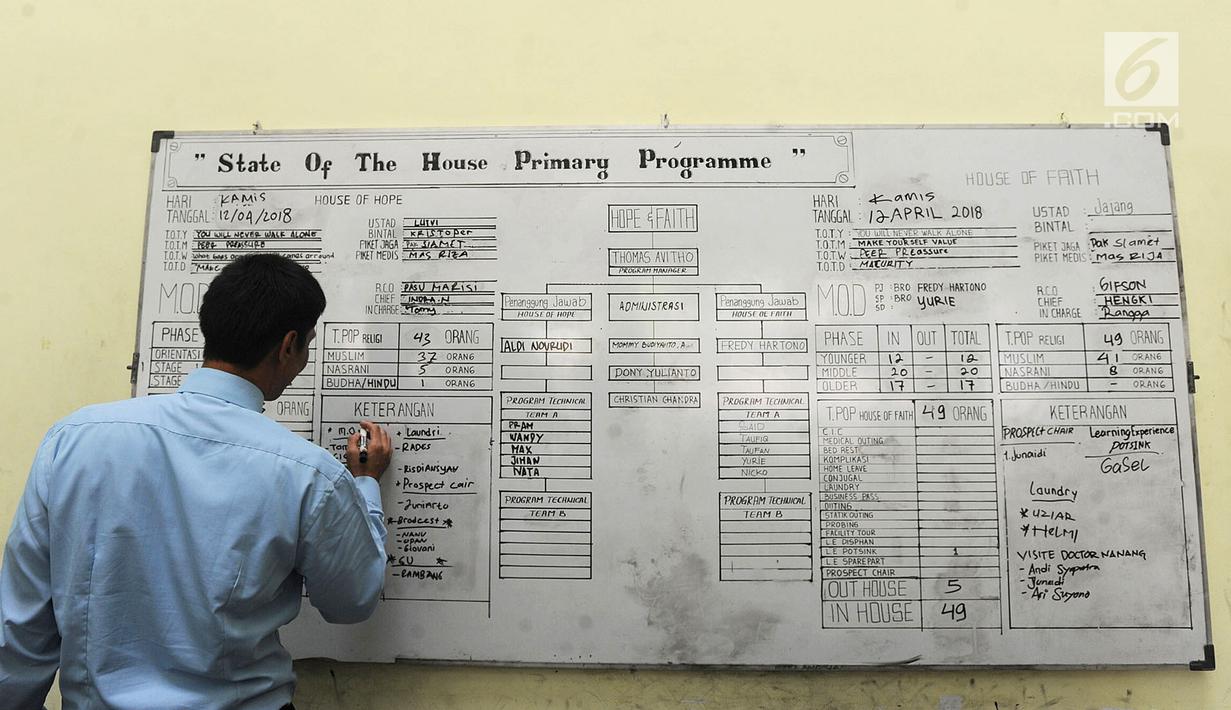 6
.COM
" State Of The House Primary Programme "
HARI : KAMIS
TANGGAL : 12/04/2018
HOUSE OF HOPE
T.O.T.Y YOU WILL NEVER WALK ALONE
T.O.T.M PEER PREASSURE
T.O.T.W What goes around
T.O.T.D
USTAD :
BINTAL : KRISTOPER
PIKET JAGA : PAK SLAMET
PIKET MEDIS : MAS RIZA
M.O.D
R.C.O : PASU MARISI
CHIEF : INDRA.N
IN CHARGE : Tomy
PHASE
ORIENTASI
STAGE
STAGE
ORANG
T.POP RELIGI 43 ORANG
MUSLIM 37 ORANG
NASRANI 5 ORANG
BUDHA/HINDU 1 ORANG
KETERANGAN
* M.O
+ Laundri
- RADES
- RISDIANSYAH
+ Prospect Cair
- Junianto
* Brodcest *
- NANU
- UPAN
- Giovani
* GU *
- BAMBANG
HOPE & FAITH
THOMAS AVITHO
PROGRAM MANAGER
Penanggung Jawab
HOUSE OF HOPE
ADMINISTRASI
Penanggung Jawab
HOUSE OF FAITH
ALDI NOVRUDI
MOMMY BUDIYANTO. A
FREDY HARTONO
DONY YULIANTO
CHRISTIAN CHANDRA
PROGRAM TECHNICAL
TEAM A
PRAM
WANDY
MAX
JIHAN
NATA
PROGRAM TECHNICAL
TEAM B
PROGRAM TECHNICAL
TEAM A
SAID
TAUFIQ
TAUFAN
YURIE
NICKO
PROGRAM TECHNICAL
TEAM B
HOUSE OF FAITH
HARI : Kamis
TANGGAL : 12 APRIL 2018
T.O.T.Y : YOU WILL NEVER WALK ALONE
T.O.T.M : MAKE YOURSELF VALUE
T.O.T.W : PEER PReassure
T.O.T.D : MATURITY
USTAD : Jajang
BINTAL
PIKET JAGA : Pak Slamet
PIKET MEDIS : Mas RIJA
M.O.D
PJ : BRO FREDY HARTONO
SP : BRO YURIE
SD :
R.C.O : GIFSON
CHIEF : HENGKI
IN CHARGE : Rangga
PHASE IN OUT TOTAL
YOUNGER 12 - 12
MIDDLE 20 - 20
OLDER 17 - 17
T.POP RELIGI 49 ORANG
MUSLIM 41 ORANG
NASRANI 8 ORANG
BUDHA/HINDU - ORANG
T.POP HOUSE OF FAITH 49 ORANG
C.I.C
MEDICAL OUTING
BED REST
KOMPLIKASI
HOME LEAVE
CONJUGAL
LAUNDRY
BUSINESS PASS
OUTING
STATIK OUTING
PROBING
FACILITY TOUR
L.E DISPHAN
L.E POTSINK 1
L.E SPAREPART
PROSPECT CHAIR
OUT HOUSE 5
IN HOUSE 49
KETERANGAN
PROSPECT CHAIR
1. Junaidi
Learning Experience
POTSINK
GaSel
Laundry
* UZIAR
* HELMI
VISITE DOCTOR NANANG
- Andi Syaputra
- Junaidi
- Ari Suyono